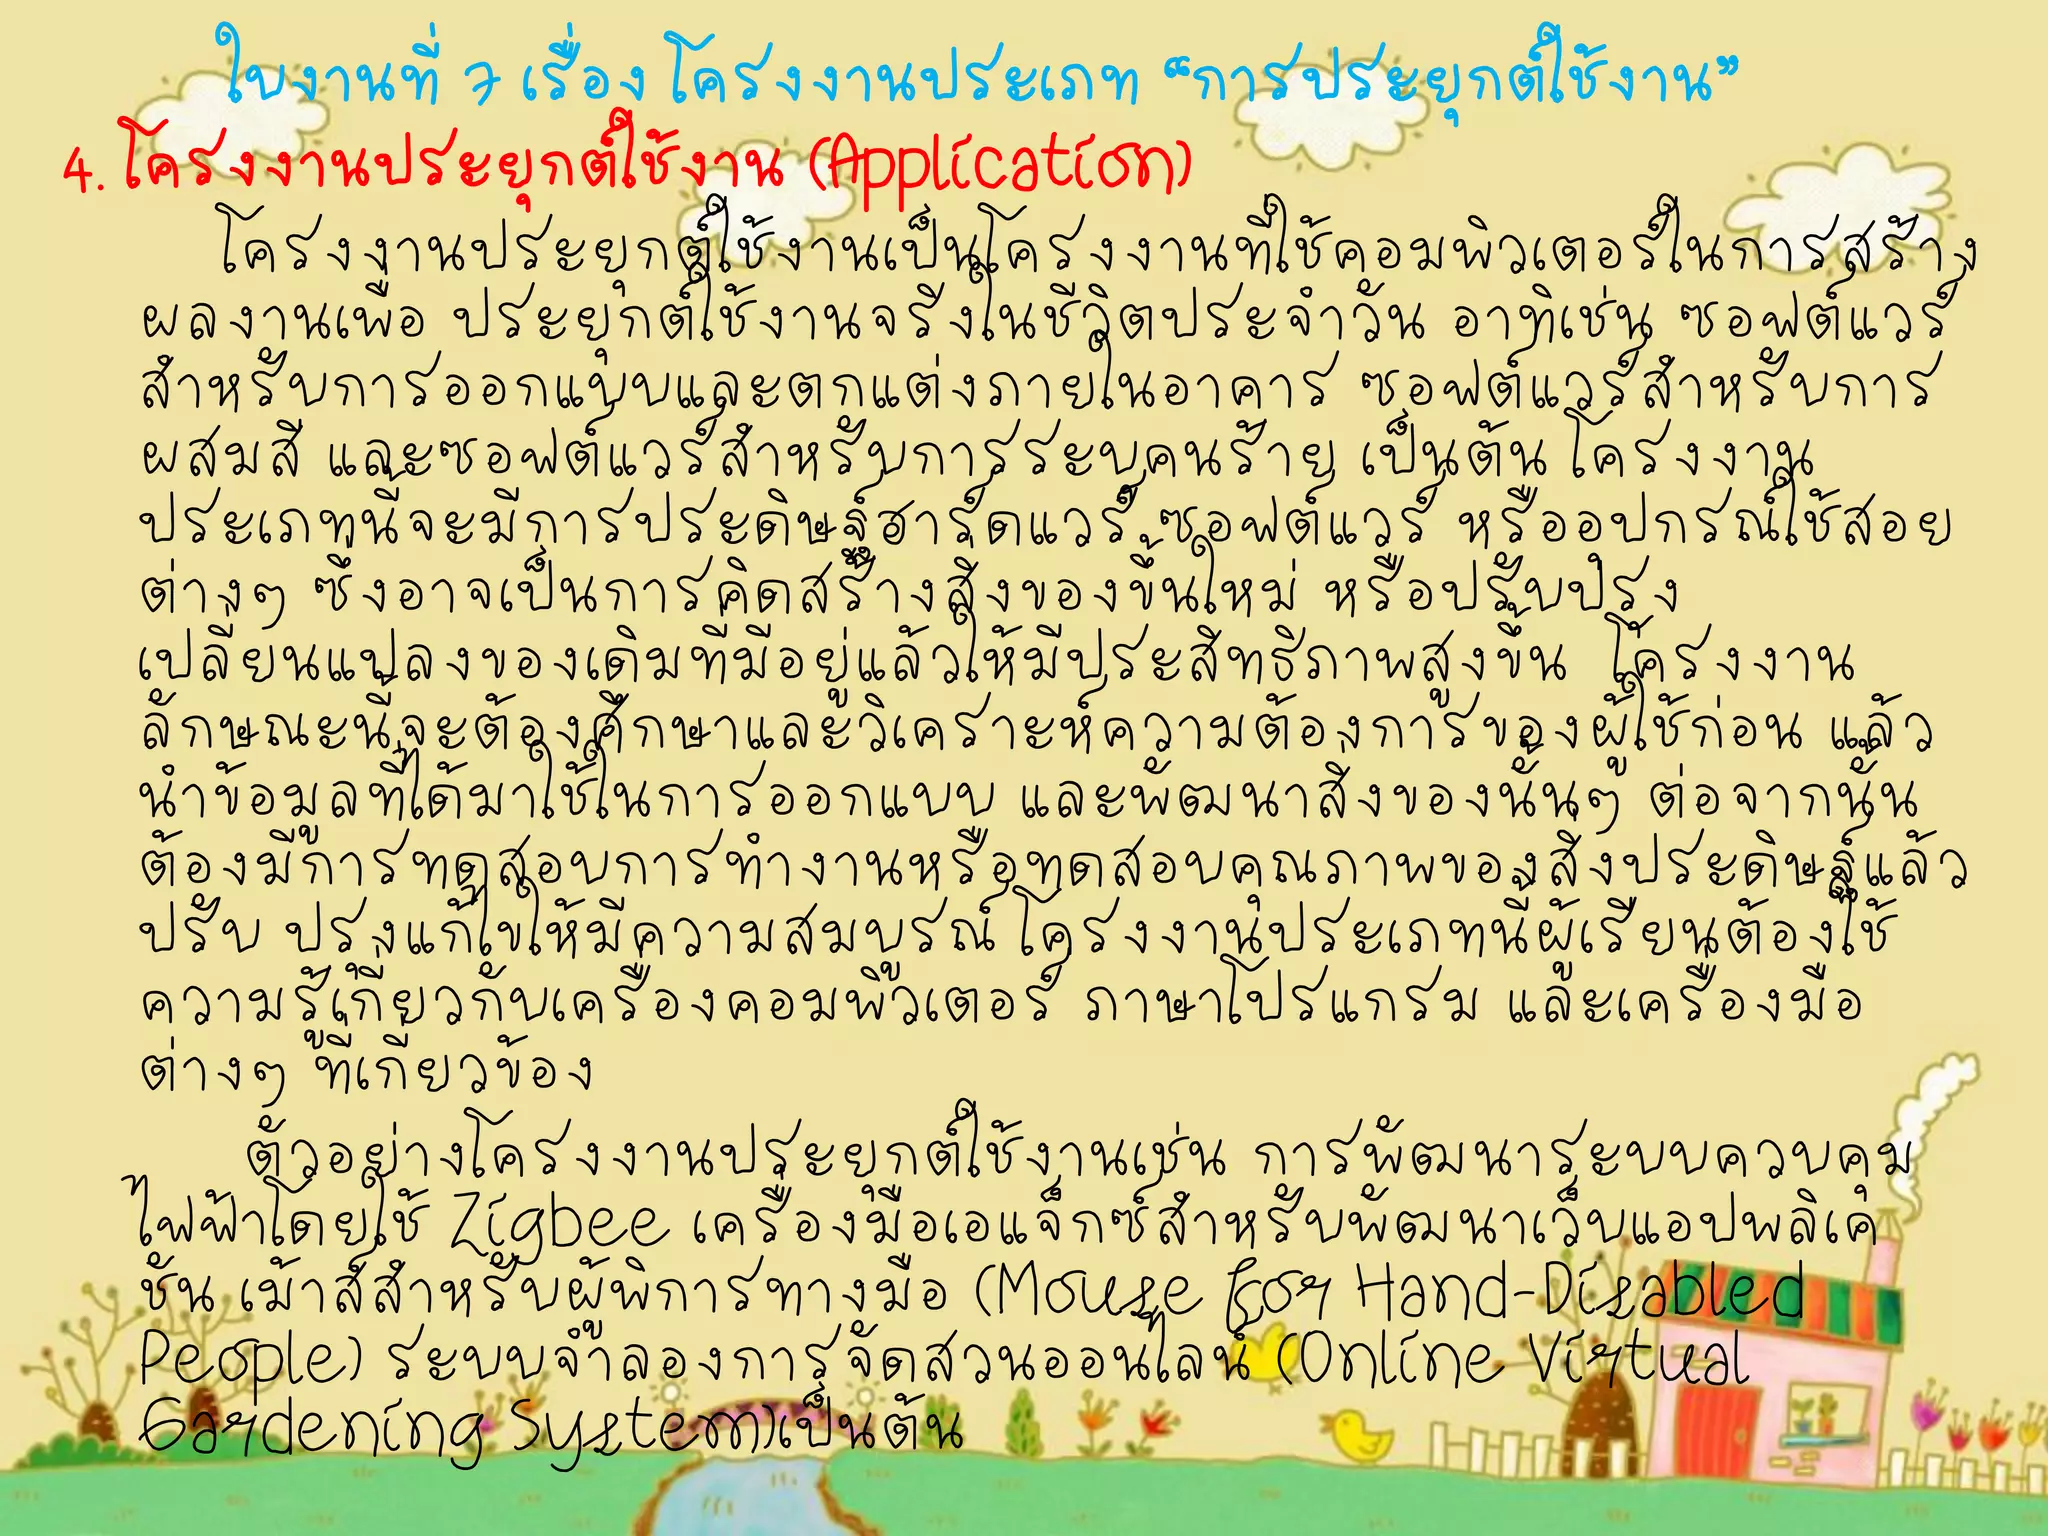 ใบงานที่ 7 เรื่อง โครงงานประเภท “การประยุกต์ใช้งาน”
4. โครงงานประยุกต์ใช้งาน (Application)
โครงงานประยุกต์ใช้งานเป็นโครงงานที่ใช้คอมพิวเตอร์ในการสร้าง
ผลงานเพื่อ ประยุกต์ใช้งานจริงในชีวิตประจำวัน อาทิเช่น ซอฟต์แวร์
สำหรับการออกแบบและตกแต่งภายในอาคาร ซอฟต์แวร์สำหรับการ
ผสมสี และซอฟต์แวร์สำหรับการระบุคนร้าย เป็นต้น โครงงาน
ประเภทนี้จะมีการประดิษฐ์ฮาร์ดแวร์ ซอฟต์แวร์ หรืออุปกรณ์ใช้สอย
ต่างๆ ซึ่งอาจเป็นการคิดสร้างสิ่งของขึ้นใหม่ หรือปรับปรุง
เปลี่ยนแปลงของเดิมที่มีอยู่แล้วให้มีประสิทธิภาพสูงขึ้น โครงงาน
ลักษณะนี้จะต้องศึกษาและวิเคราะห์ความต้องการของผู้ใช้ก่อน แล้ว
นำข้อมูลที่ได้มาใช้ในการออกแบบ และพัฒนาสิ่งของนั้นๆ ต่อจากนั้น
ต้องมีการทดสอบการทำงานหรือทดสอบคุณภาพของสิ่งประดิษฐ์แล้ว
ปรับ ปรุงแก้ไขให้มีความสมบูรณ์ โครงงานประเภทนี้ผู้เรียนต้องใช้
ความรู้เกี่ยวกับเครื่องคอมพิวเตอร์ ภาษาโปรแกรม และเครื่องมือ
ต่างๆ ที่เกี่ยวข้อง
ตัวอย่างโครงงานประยุกต์ใช้งานเช่น การพัฒนาระบบควบคุม
ไฟฟ้าโดยใช้ Zigbee เครื่องมือเอแจ็กซ์สำหรับพัฒนาเว็บแอปพลิเค
ชัน เม้าส์สำหรับผู้พิการทางมือ (Mouse for Hand-Disabled
People) ระบบจำลองการจัดสวนออนไลน์ (Online Virtual
Gardening System)เป็นต้น